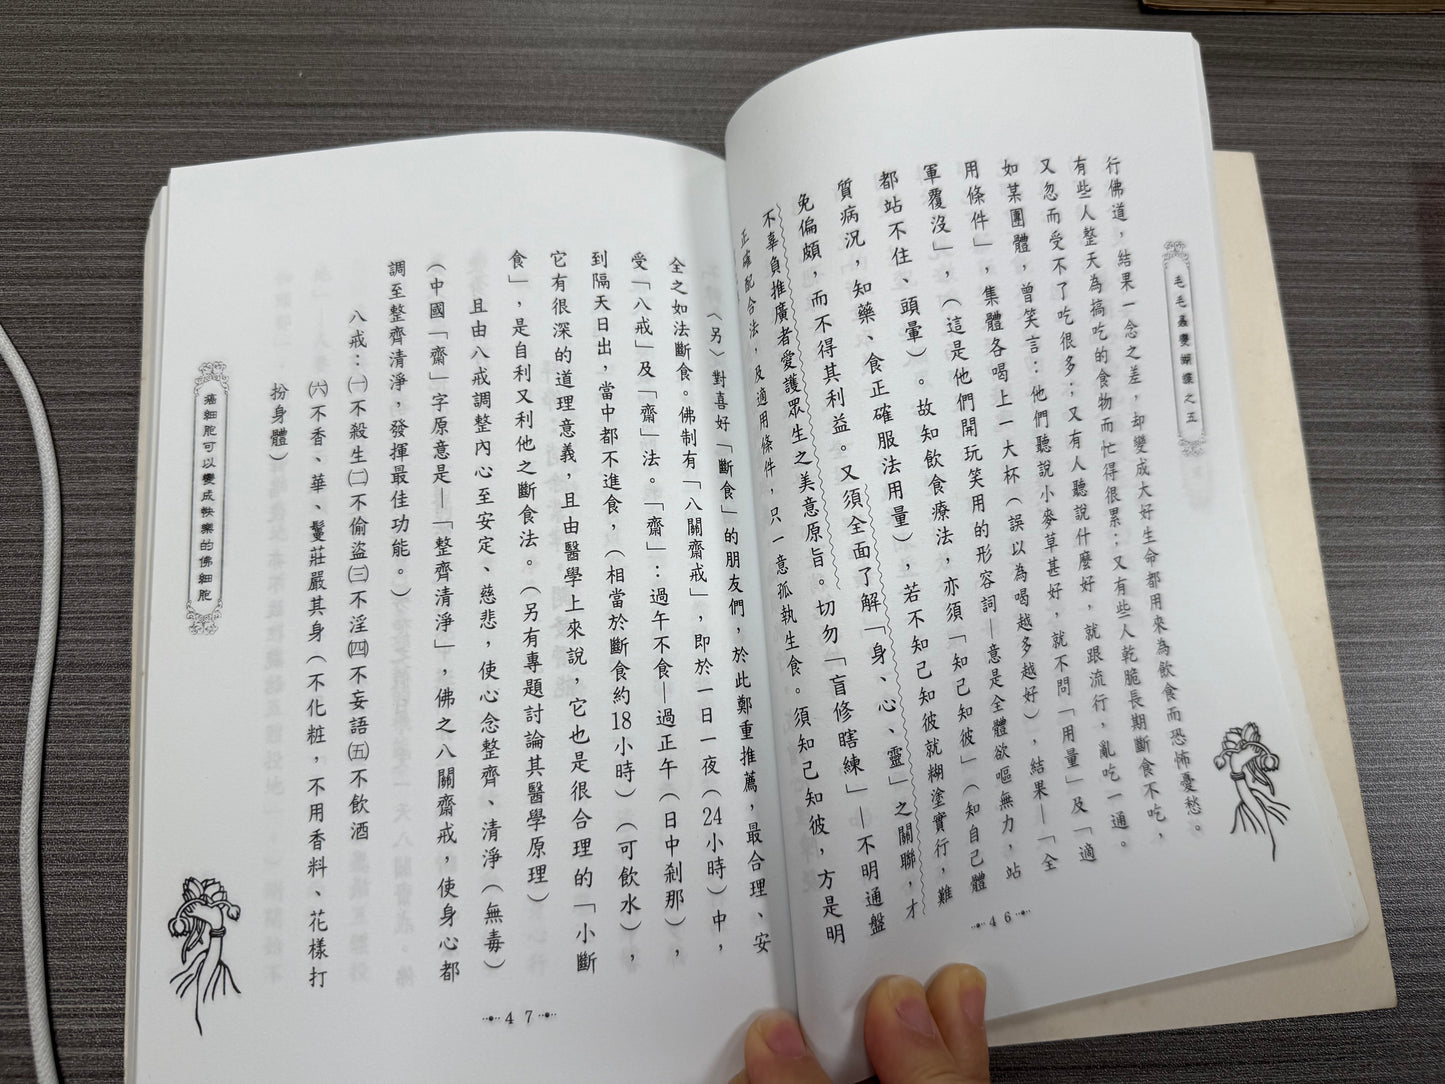 毛毛蟲變蝴蝶之五
行佛道，結果一念之差，却變成大好生命都用來為飲食而恐怖憂愁。
有些人整天為搞吃的食物而忙得很累；又有些人乾脆長期斷食不吃，
又忽而受不了吃很多；又有人聽說什麼好，就跟流行，亂吃一通。
如某團體，曾笑言：他們聽說小麥草甚好，就不問「用量」及「適
用條件」，集體各喝上一大杯（誤以為喝越多越好），結果—「全
軍覆沒」，（這是他們開玩笑用的形容詞—意是全體欲嘔無力，站
都站不住、頭暈）。故知飲食療法，亦須「知己知彼」（知自己體
質病況，知藥、食正確服法用量），若不知己知彼就糊塗實行，難
免偏頗，而不得其利益。又須全面了解「身、心、靈」之關聯，才
不辜負推廣者愛護眾生之美意原旨。切勿「盲修瞎練」—不明通盤
正確配合法，及適用條件，只一意孤執生食。須知己知彼，方是明
46
（另）對喜好「斷食」的朋友們，於此鄭重推薦，最合理、安
全之如法斷食。佛制有「八關齋戒」，即於一日一夜（24小時）中，
受「八戒」及「齋」法。「齋」：過午不食—過正午（日中剎那），
到隔天日出，當中都不進食，（相當於斷食約18小時）（可飲水），
它有很深的道理意義，且由醫學上來說，它也是很合理的「小斷
食」，是自利又利他之斷食法。（另有專題討論其醫學原理）
且由八戒調整內心至安定、慈悲，使心念整齊、清淨（無毒）
（中國「齋」字原意是—「整齊清淨」，佛之八關齋戒，使身心都
調至整齊清淨，發揮最佳功能。）
八戒：㈠不殺生㈡不偷盜㈢不淫㈣不妄語㈤不飲酒
㈥不香、華、鬘莊嚴其身（不化粧，不用香料、花樣打
扮身體）
癌細胞可以變成快樂的佛細胞
47